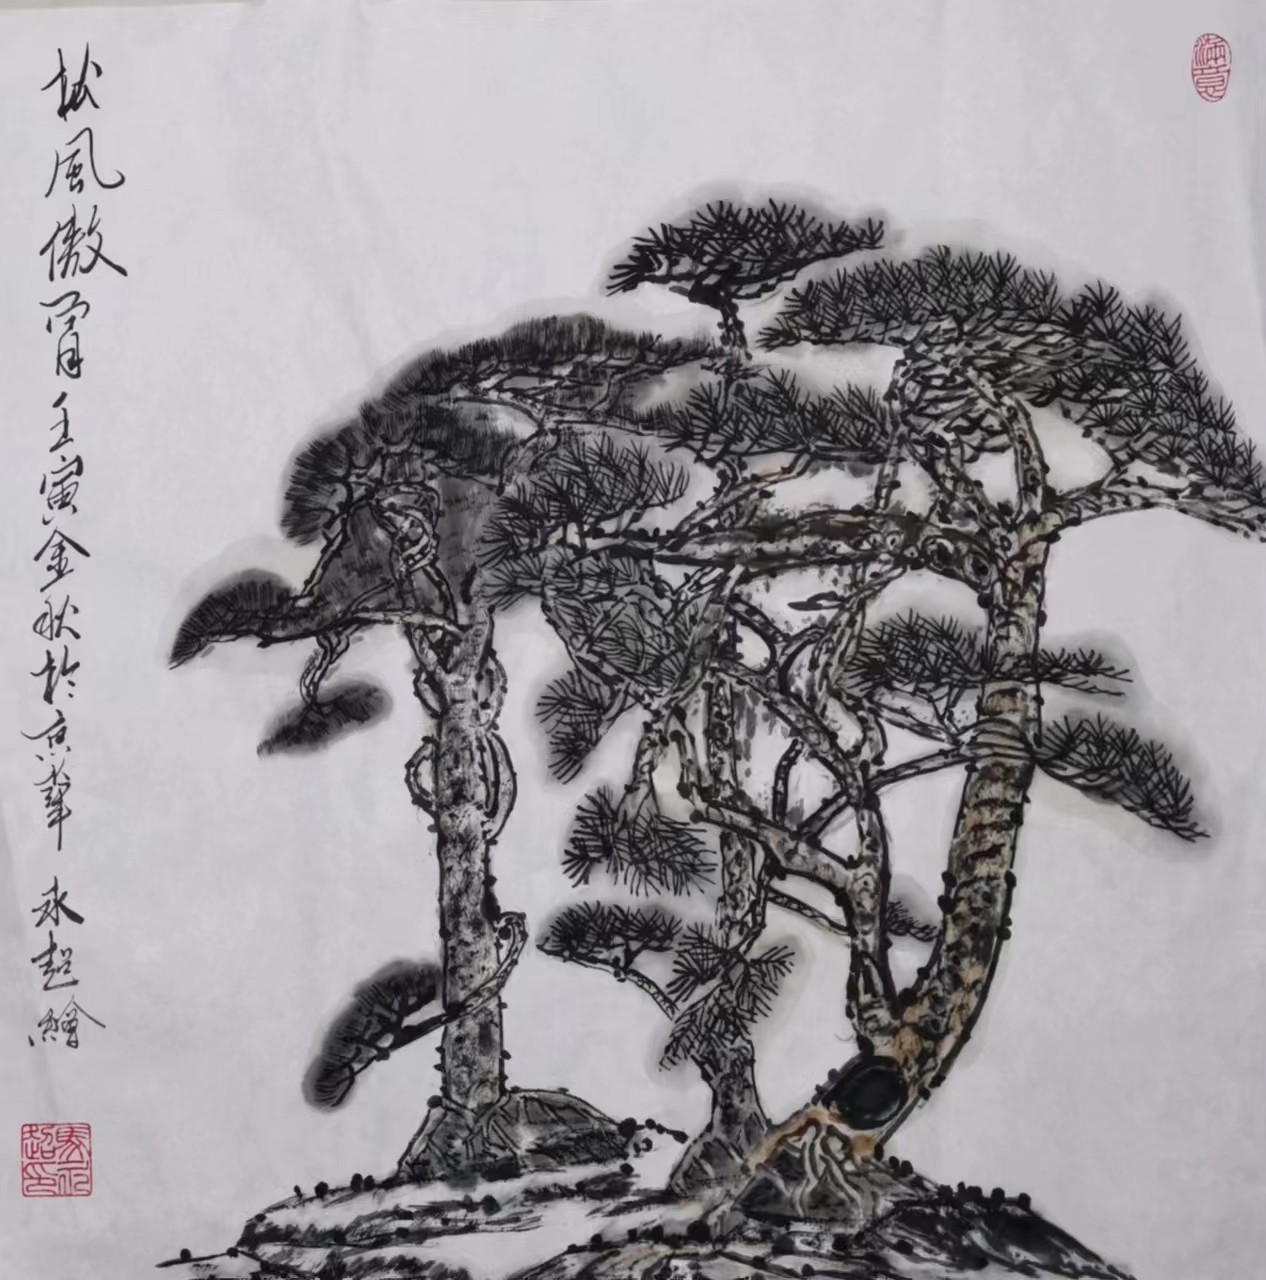 松風傲骨 壬寅金秋於京華 永超繪